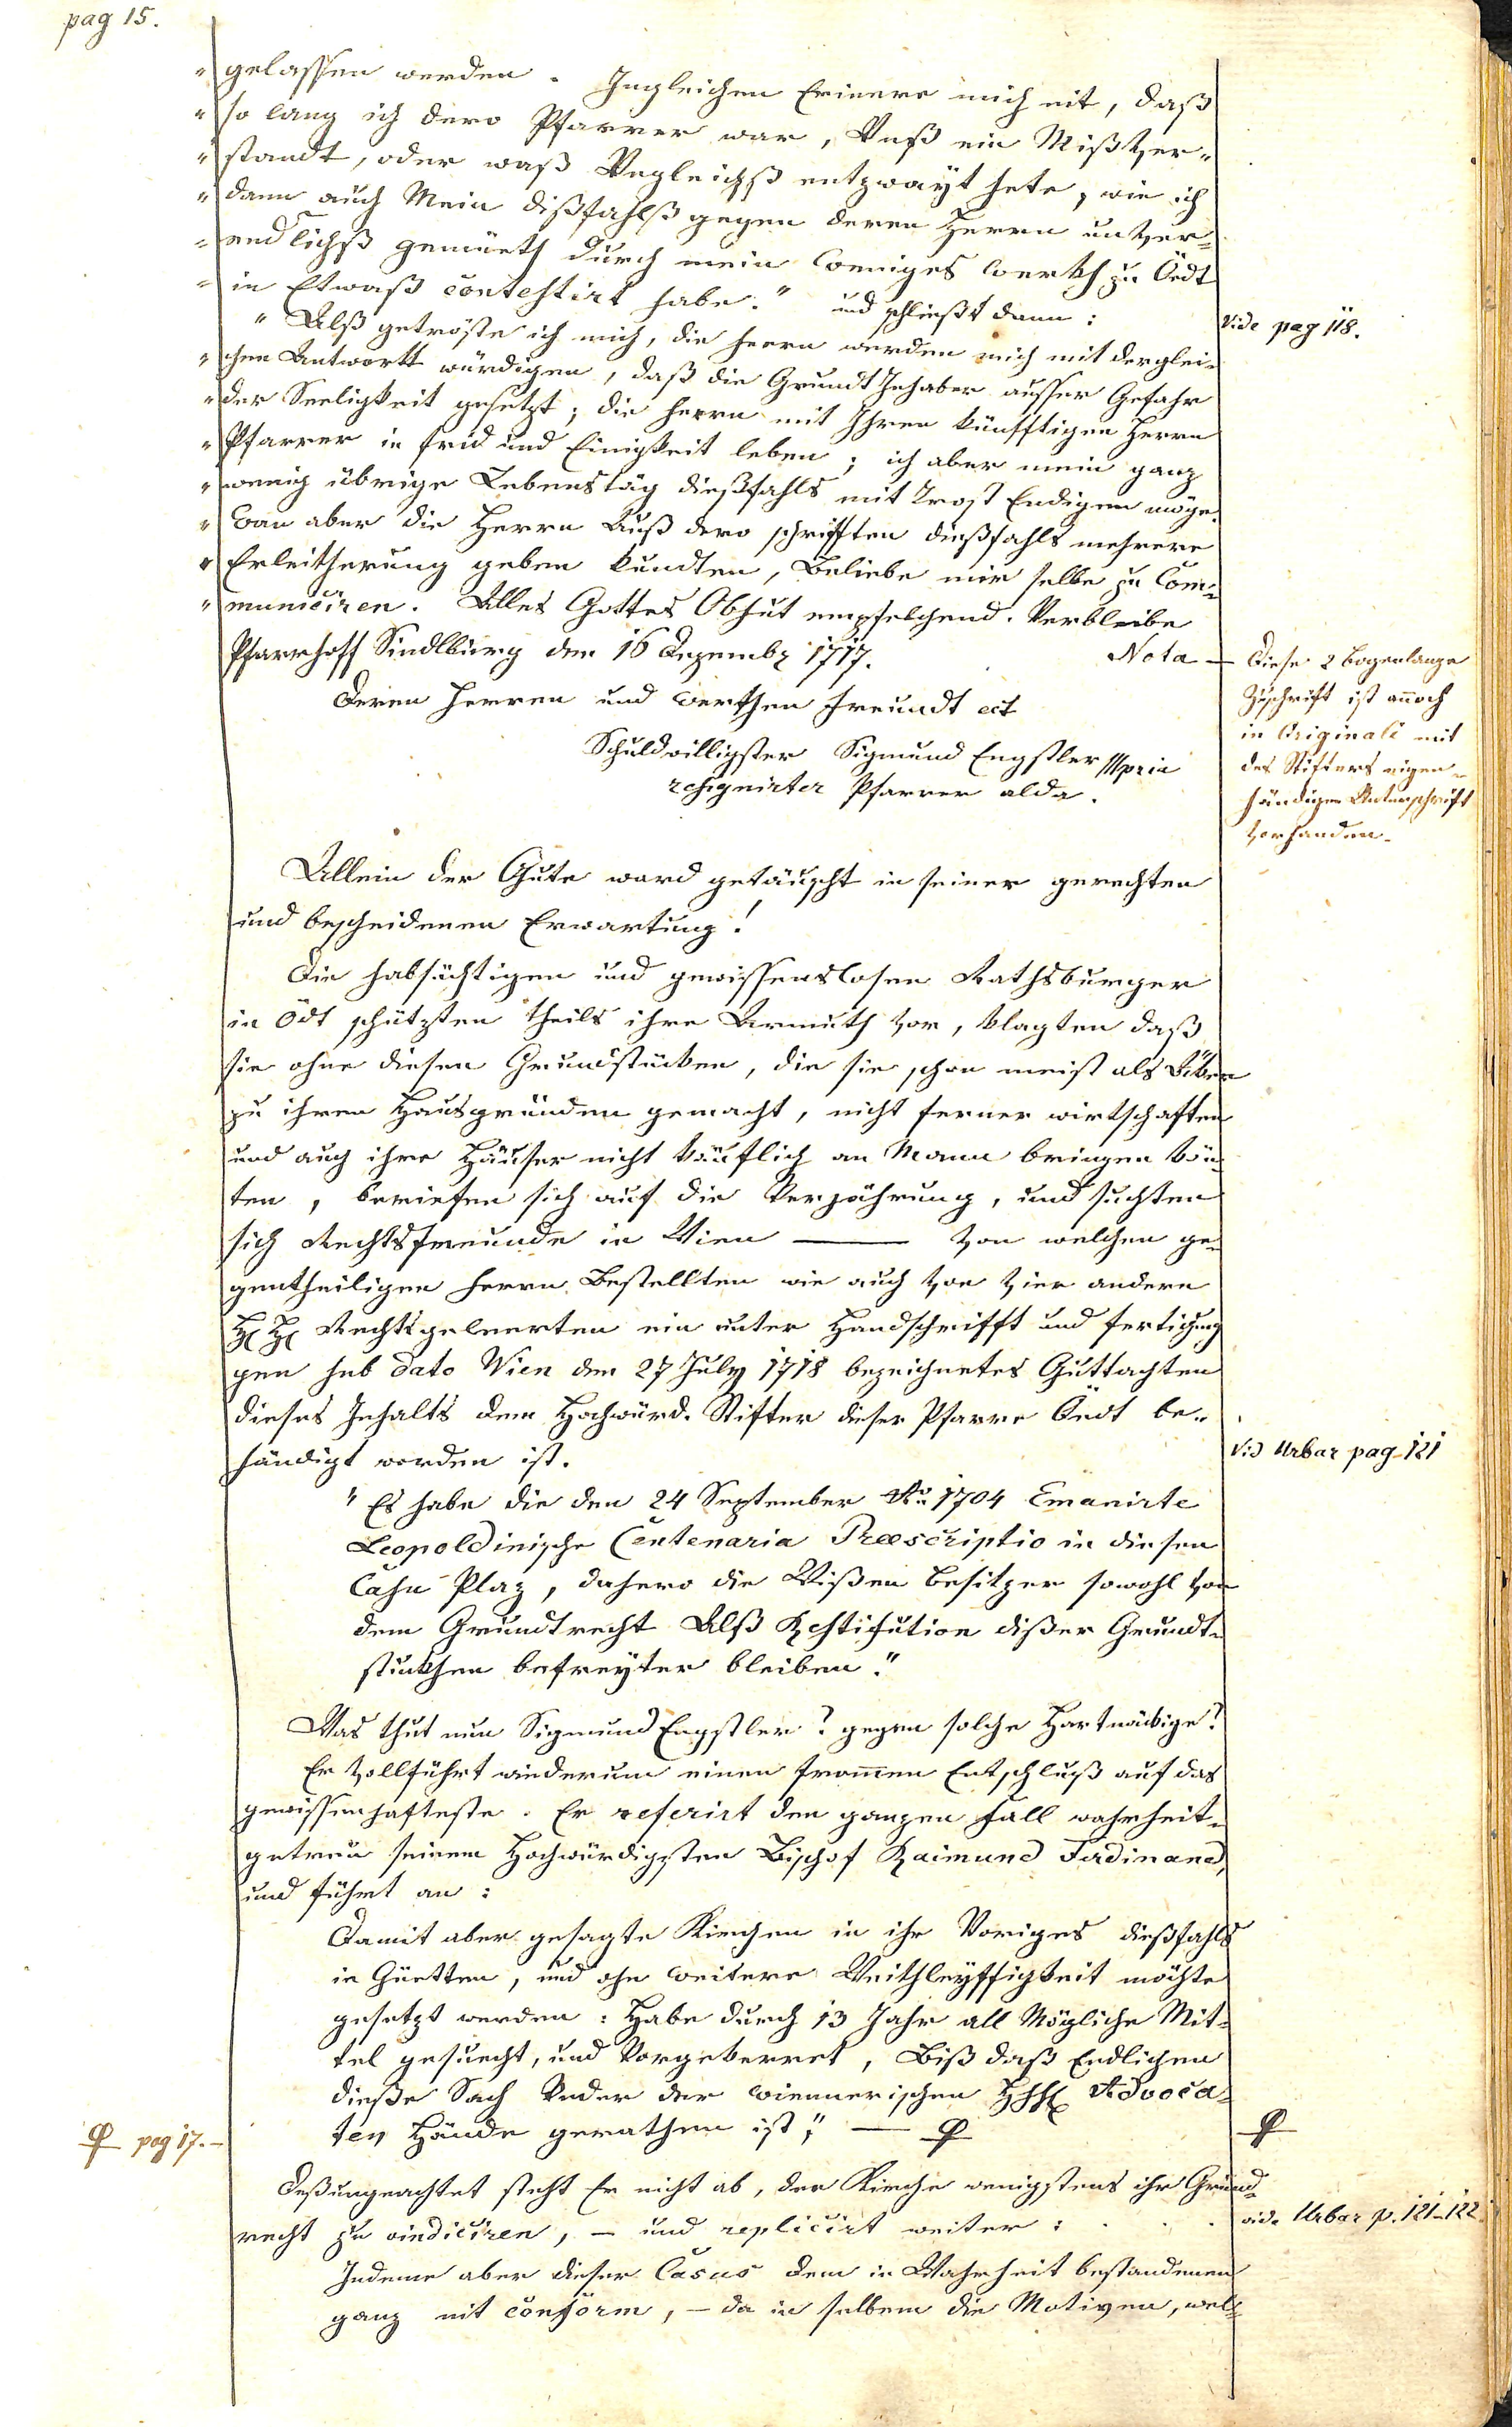 pag 15.
" gelassen werden. Ingleichen Erinere mich nit, daß
" so lang ich dero Pfarrer war, Unß ein Mißver-
" standt, oder waß Ungleichß entzwayt hete, wie ich
" dann auch Mein dißfahlß gegen denen Herrn unver-
" endlichß gemüeth durch mein weniges werkh zu Öedt
" in Etwaß contestirt habe." und schließt dann:
" Alß getröste ich mich, die herrn werden mich mit derglei-
" chen Antwortt würdigen, daß die Grundt Inhaber ausser Gefahr
" der Seeligkeit gesetzt; die herrn mit Ihren künfftigen Herrn
" Pfarrer in frid und Einigkeit leben; ich aber mein ganz
" wenig übrige Lebenstäg dießfahls mit Trost Endigen möge.
" Wan aber die Herrn Auß dero schrifften dießfahls mehrere
" Erleitherung geben kundten, Beliebe mir selbe zu Com-
" municiren. Alles Gottes Obhut empfelchend. Verbleibe
Vide pag 118.
Pfarrhoff Sindlburg den 16 Dezembr 1717. Nota —
Deren herren und werthen freundt ect
Schuldwilligster Sigmund Engstler Mpria
resignirter Pfarrer alda.
Diese 2 bogenlange
Zuschrift ist annoch
in Originali mit
des Stifters eigen-
händiger Unterschrift
vorhanden.
Allein der Gute ward getäuscht in seiner gerechten
und bescheidenen Erwartung!
Die habsüchtigen und gewissenslosen Rathsbürger
in Ödt schützten theils ihre Armuth vor, klagten daß
sie ohne diesen Grundstücken, die sie schon meist als Äker
zu ihren Hausgründen gemacht, nicht ferner wirtschaften
und auch ihre Häuser nicht käuflich an Mann bringen kön
ten, beriefen sich auf die Verjährung, und suchten
sich Rechtsfreunde in Wien — von welchen ge-
gentheiligen herrn Bestellten wie auch von vier andern
H H Rechtsgelehrten ein unter Handschrifft und fertigun
gen sub dato Wien den 27 July 1718 bezeichnetes Guttachten
dieses Inhalts dem Hochwürd. Stifter dieser Pfarre Öedt be-
händigt worden ist.
Vid Urbar pag 121
" Es habe die den 24 September Ao 1704 Emanirte
Leopoldinische Centenaria Præscriptio in diesen
Casu Plaz, dahero die Wißen besitzer sowohl von
dem Grundtrecht Alß Restitution dißer Grundt-
stückhen befreyter bleiben."
Was thut nun Sigmund Engstler? gegen solche Hartnäckige?
Er vollführt wiederum einen frommen Entschluß auf das
gewissenhafteste. Er referirt den ganzen fall wahrheit-
getreu seinem Hochwürdigsten Bischof Raimund Ferdinand,
und führt an:
Damit aber gesagte Kirchen in ihr Voriges dießfahls
in Güetten, und ohn weitere Weithleyffigkeit möchte
gesetzt werden: Habe durch 13 Jahr all Mögliche Mit-
tel gesuecht, und Vorgekerret, Biß daß Endlichen
dieße Sach Under der wiennerischen Advoca-
ten Hände gerathen ist," —
pag 17. -
Deßungeachtet steht Er nicht ab, der Kirche wenigstens ihr Grund-
recht zu vindiciren, - und replicirt weiter:
vide Urbar p. 121-122
Indeme aber dieser Casus dem in Wahrheit bestandenen
ganz nit conform, - da in selbem die Motiven, wel-